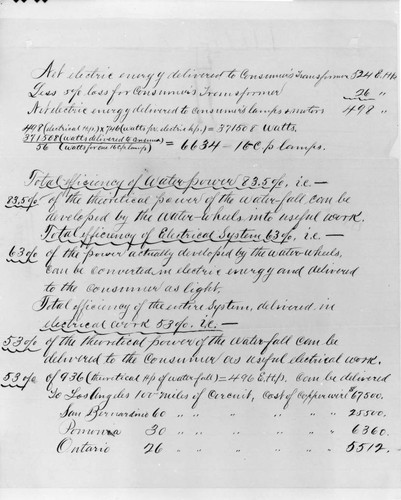 Net electric energy delivered to Consumer's Transformer 524 E.Hp.
Less 5% loss for Consumer's Transformer 26 "
Net electric energy delivered to Consumers lamps & motors 498 "
498 (electrical H.p.) x 746 (watts pr. electric h.p.) = 371508 Watts.
371508 (watts delivered to Consumer)
56 (watts for one 16 c/p lamp) = 6634 - 16 C.p. lamps.
Total efficiency of Water-power 83.5%, i.e. —
83.5% of the theoritical power of the water-fall can be
developed by the Water-Wheels into useful work.
Total efficiency of Electrical System 63%, i.e. —
63% of the power actually developed by the water-wheels,
can be converted in electric energy and delivered
to the consumer as light.
Total efficiency of the entire System, delivered in
electrical work 53%, i.e. —
53% of the theoritical power of the waterfall can be
delivered to the Consumer as useful electrical work.
53% of 936 (theoritical H.p of waterfall) = 496 E.H.p. Can be delivered
To Los Angeles 100 miles of Circuit, Cost of Copper wire $67500.
San Bernardino 60 " " " " " " 25500.
Pomona 30 " " " " " " 6360.
Ontario 26 " " " " " " 5512.